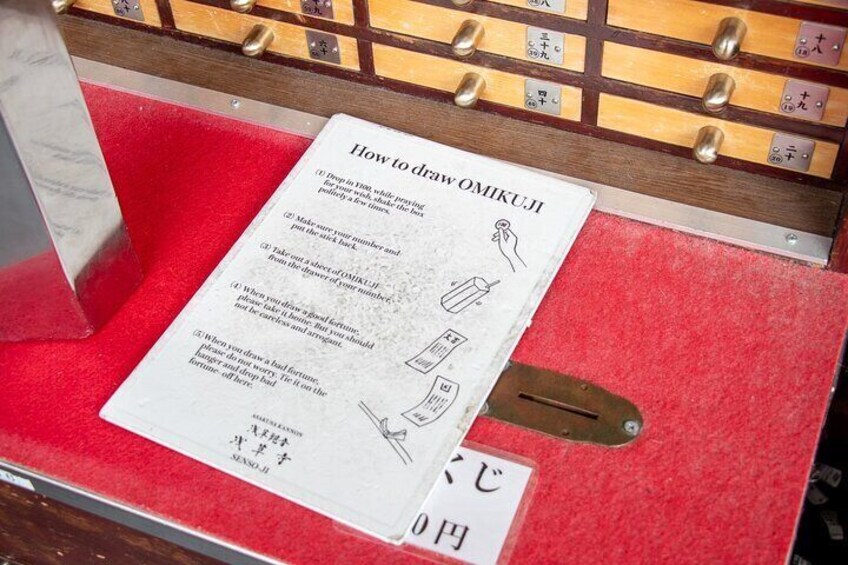 六十
三十九
39
四十
40
38
十八
18
十九
19
二十
20
How to draw OMIKUJI
(1) Drop in ¥100, while praying
for your wish, shake the box
politely a few times.
(2) Make sure your number and
put the stick back.
(3) Take out a sheet of OMIKUJI
from the drawer of your number.
(4) When you draw a good fortune,
please take it home. But you should
not be careless and arrogant.
(5) When you draw a bad fortune,
please do not worry. Tie it on the
hanger and drop bad
fortune- off here.
大吉
凶
ASAKUSA KANNON
浅草観音
浅草寺
SENSO-JI
くじ
0円